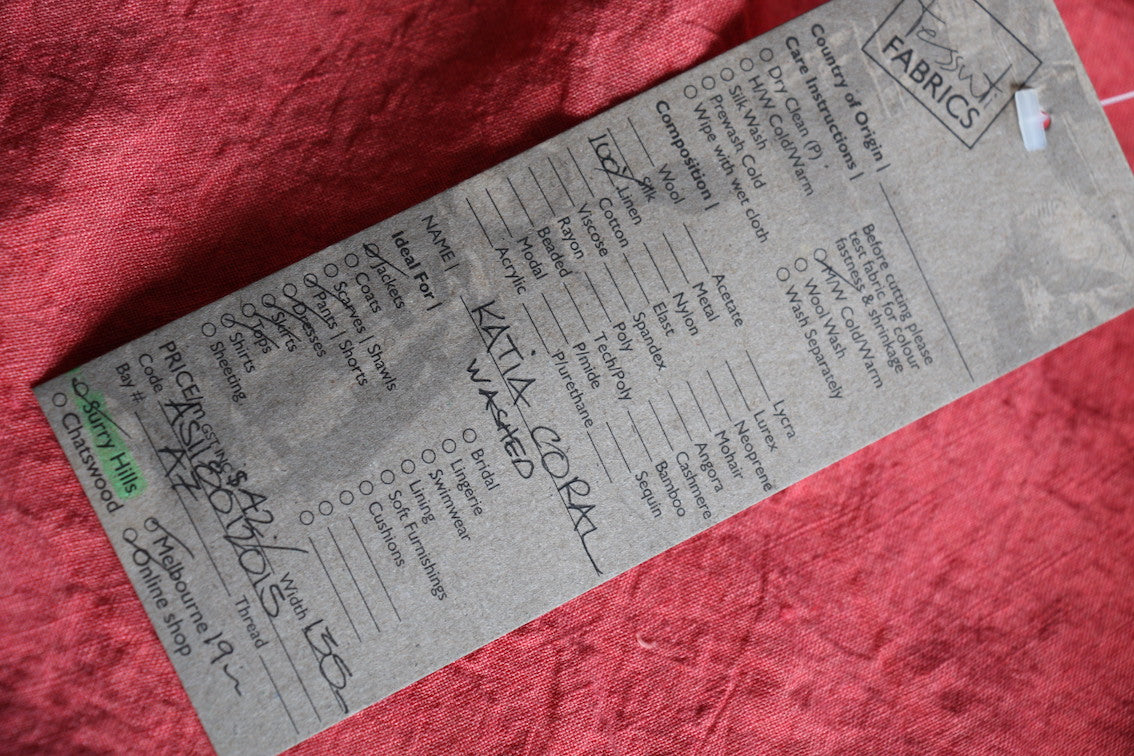 Tessuti
FABRICS
Country of Origin |
Care instructions |
Dry Clean (P)
H/W Cold/Warm
Silk Wash
Prewash Cold
Wipe with wet cloth
Before cutting please
test fabric for colour
fastness & shrinkage
M/W Cold/Warm
Wool Wash
Wash Separately
Composition |
Wool
Silk
100% Linen
Cotton
Viscose
Rayon
Beaded
Modal
Acrylic
Acetate
Metal
Nylon
Elast
Spandex
Poly
Tech/Poly
P/mide
P/urethane
Lycra
Lurex
Neoprene
Mohair
Angora
Cashmere
Bamboo
Sequin
NAME | KATIA CORAL
WASHED
Ideal For |
Jackets
Coats
Scarves | Shawls
Pants | Shorts
Dresses
Skirts
Tops
Shirts
Sheeting
Bridal
Lingerie
Swimwear
Lining
Soft Furnishings
Cushions
PRICE/m GST INC $ Width 135
Code
Bay # AZ Thread
Surry Hills Melbourne 19
Chatswood Online shop